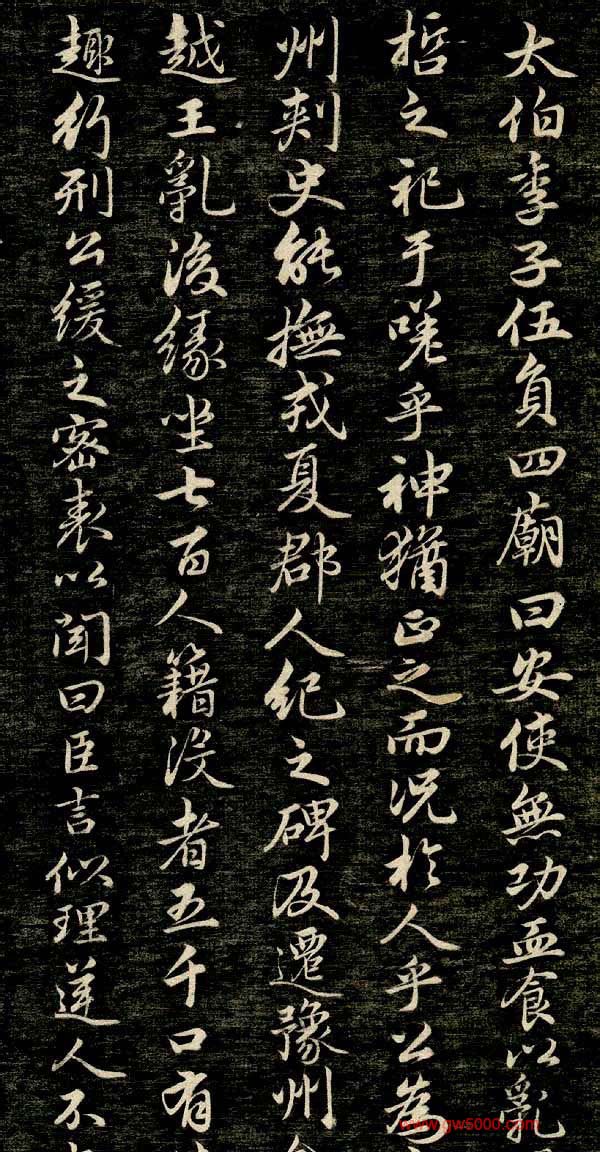 太伯季子伍員四廟曰安使無功血食以亂
哲之祀于嗟乎神猶正之而況於人乎公為
州刾史能撫戎夏郡人紀之碑及遷豫州
越王亂後緣坐七百人籍沒者五千口有
趣行刑公緩之密表以聞曰臣言似理逆人不
www.gw5000.com